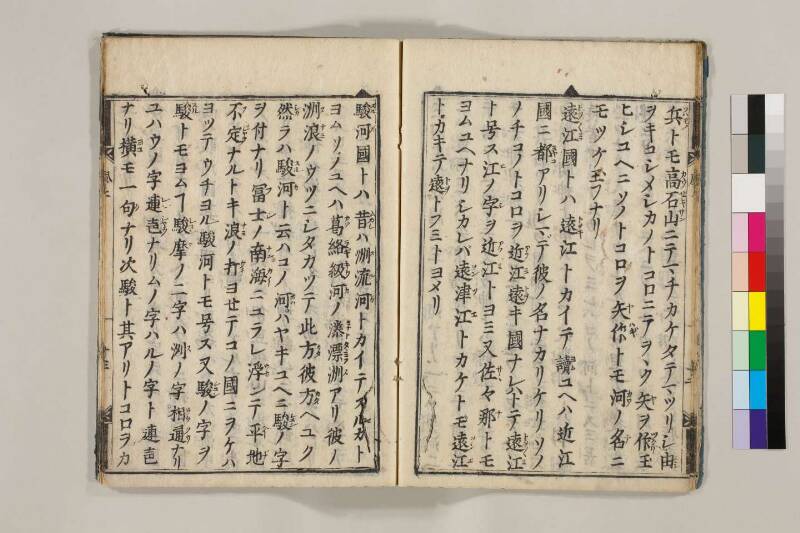 兵トモ高石山ニテマチカケタテマツリシ由
ヲキコシメシカノトコロニテヲヽク矢ヲ作玉
ヒシユヘニソノトコロヲ矢作トモ河ノ名ニ
モツケ玉フナリ
遠江國トハ遠江トカイテ讀ユヘハ近江
國ニ都アリシマデ彼ノ名ナカリケリソノ
ノチコノトコロヲ近江遠キ國ナレトテ遠江
ト号ス江ノ字ヲ近江トヨミ又佐々那トモ
ヨムユヘナリシカレバ遠津江トカケトモ遠江
トカキテ遠トフミトヨメリ
駿河國トハ昔ハ洲流河トカイテスルガト
ヨムソノユヘハ葛絡級河ノ漂洲アリ彼ノ
洲浪ノウツニシタガツテ此方彼方ヘユク
然ラハ駿河ト云ハコノ河ハヤキユヘニ駿ノ字
ヲ付ナリ冨士ノ南海ニユラレ浮シテ平地
不定ナルトキ浪ノ打ヨセテコノ國ニヲケハ
ヨツテウチヨル駿河トモ号ス又駿ノ字ヲ
駿トモヨム駿摩ノ二字ハ洌ノ字相通ナリ
ユハウノ字連声ナリムノ字ハルノ字ト連声
ナリ横モ一句ナリ次駿ト其アリトコロヲカ